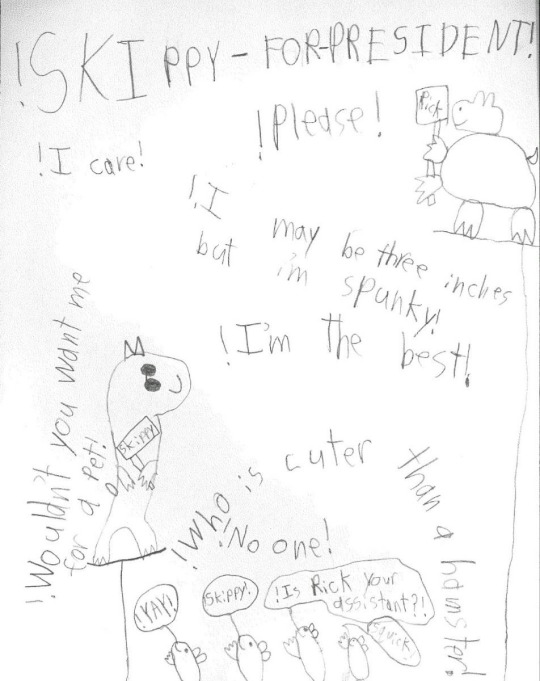 !SKIPPY-FOR-PRESIDENT!
!Please!
Rick
!I care!
!I may be three inches
but i'm spunky!
!I'm the best!
!Wouldn't you want me
for a pet!
Skippy
!Who is cuter than a hamster!
!No one!
!YAY!
Skippy!
!Is Rick your
assistant?!
squick!